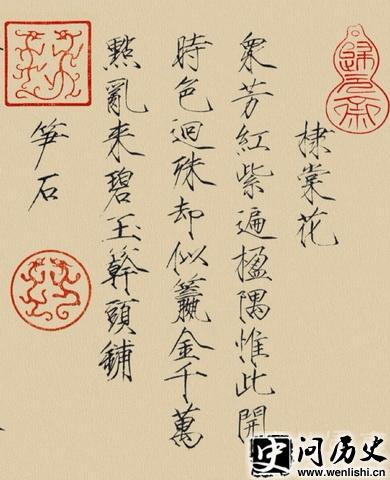 棣棠花
衆芳紅紫遍楹隅惟此開
時色迥殊却似籯金千萬
點亂来碧玉幹頭鋪
笋石
史 问历史
www.wenlishi.cn